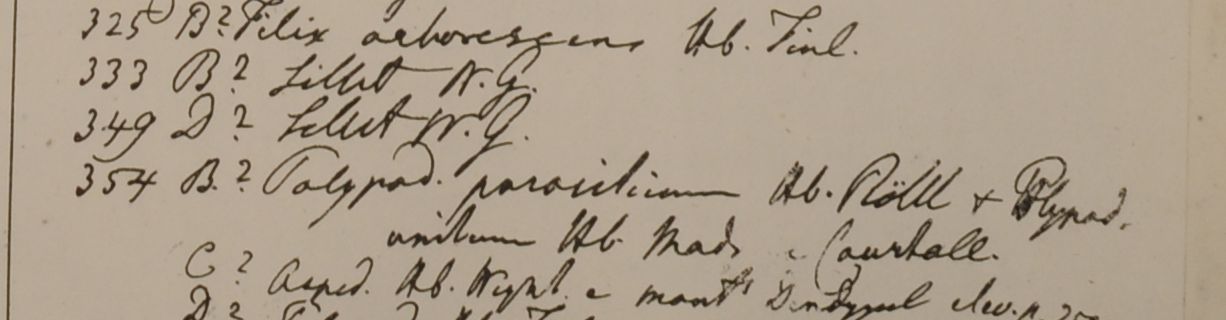 325 B? Filix arborescens Hb. Finl.
333 B? Sillet W.G.
349 D? Sillet W.G.
354 B? Polypod. parasiticum Hb. Röttl + Polypod.
unitum Hb. Mad. e Courtall.
C? Asped. Hb. Wight e mont Dindygul elev. p.
D?